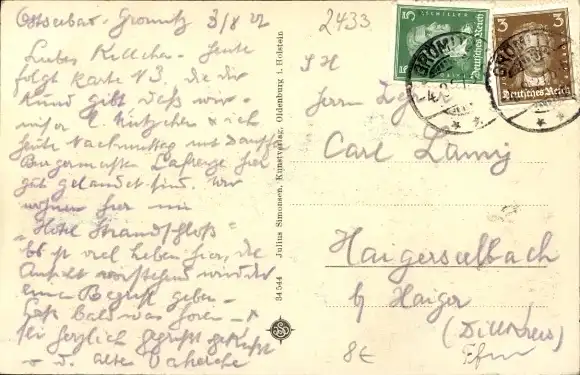 Ostseebad - Grömitz 3/8 27
Liebes Kellchen - Heute
folgt Karte N 3. die dir
Kund gibt daß wir -
& ich
heute Nachmittag mit Dampfer
Bürgermeister Lafrenz hier
gut gelandet sind. Wir
wohnen hier im
"Hotel Strandschloß"
Es ist viel Leben hier, die
Ansicht vorstehend wird dir
einen Begriff geben -
Laß bald was hören -
sei herzlich gegrüßt geküßt
v. d. alten
34544 Julius Simonsen, Kunstverlag, Oldenburg i. Holstein
2433
SH
Herrn
Carl
Haigerseelbach
by Haiger
(Dillkreis)
8€
5
SCHILLER
Deutsches Reich
3
Deutsches Reich
GRÖMITZ
GRÖMITZ